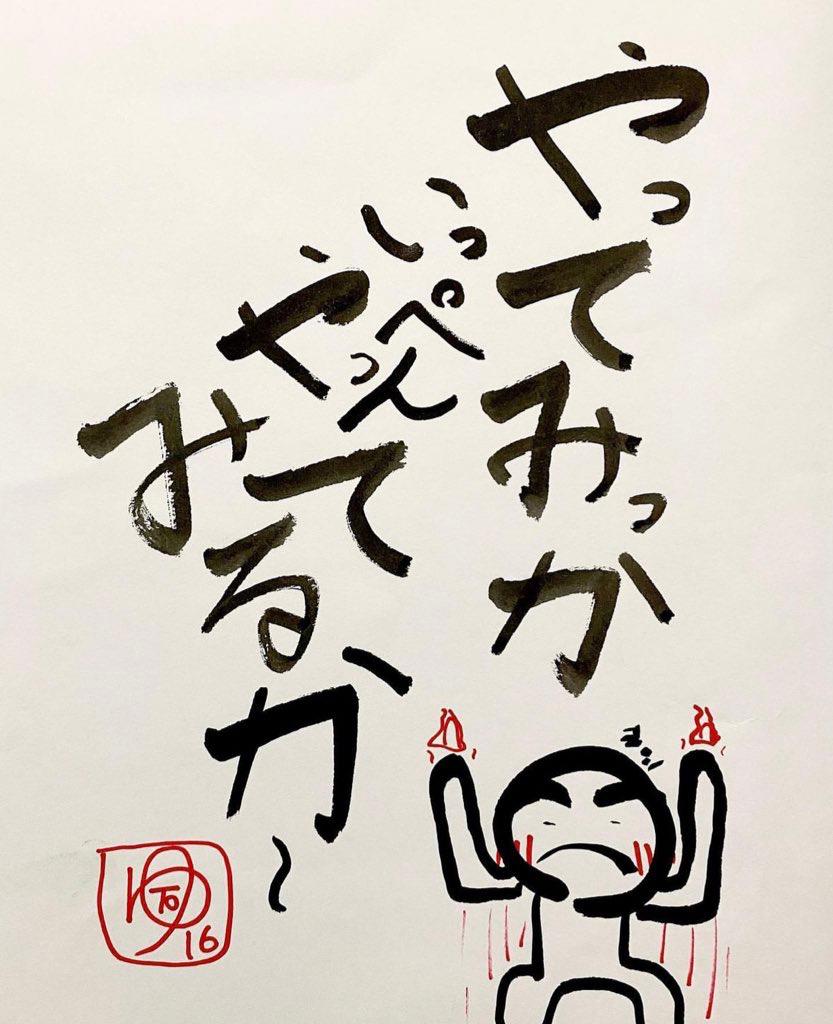 やってみっか
いっぺん
やって
みるか〜
ゆ
TO
16